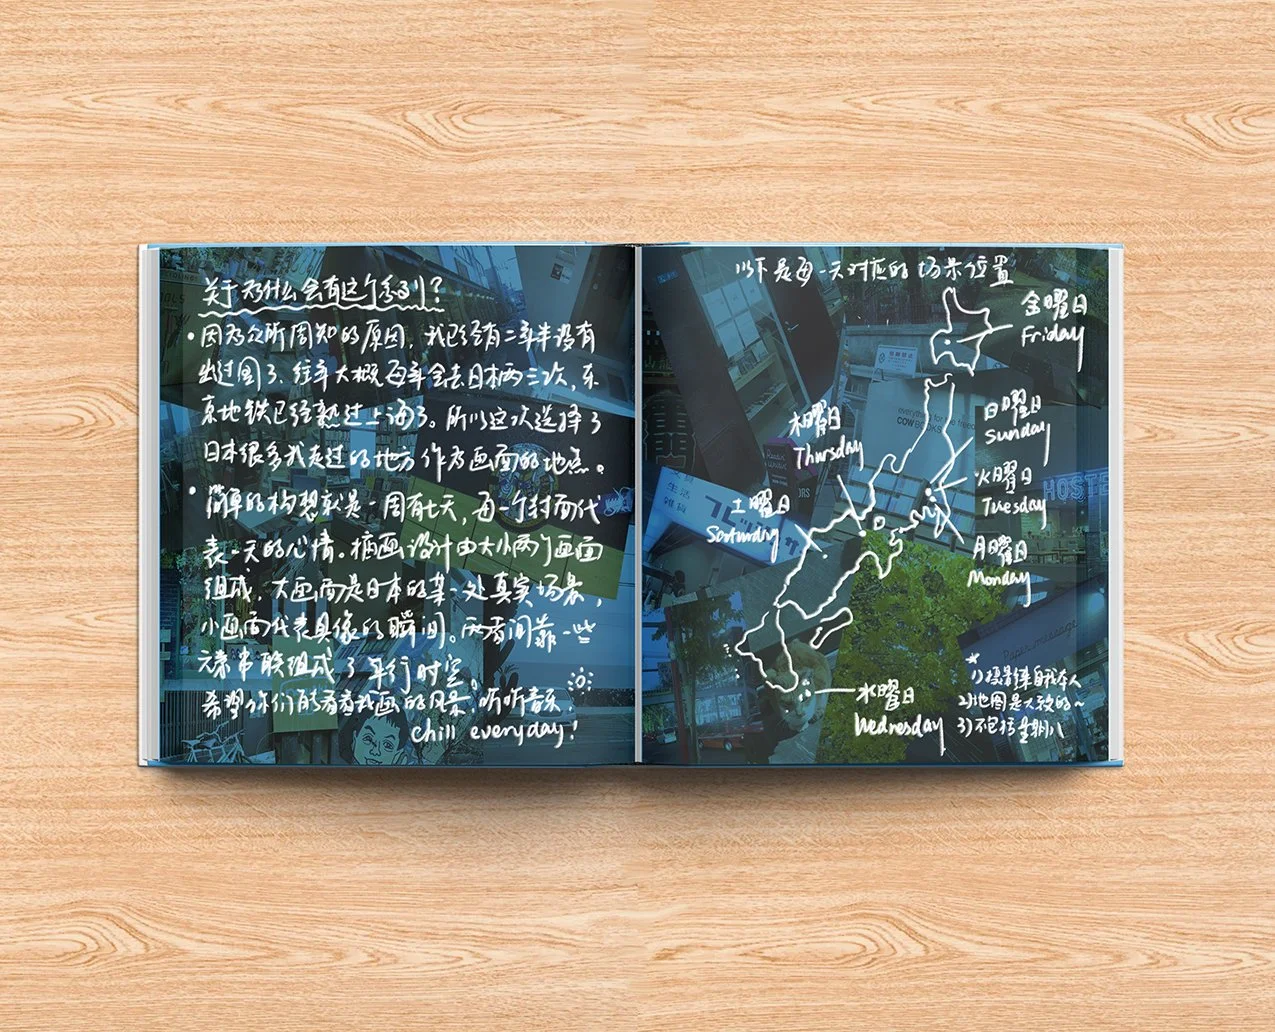 关于为什么会有这个系列？
• 因为众所周知的原因，我已经有二年半没有
出过国了、往年大概每年会去日本两三次，东
京地铁已经熟过上海了。所以这次选择了
日本很多我走过的地方作为画面的地点。
• 简单的构想就是一周有七天，每一个封面代
表一天的心情。插画设计由大小两个画面
组成，大画面是日本的某一处真实场景，
小画面代表具像的瞬间。两者间靠一些
元素串联组成了平行时空。
希望你们能看看我画的风景，听听音乐，
chill everyday!
以下是每一天对应的场景位置
金曜日
Friday
日曜日
Sunday
木曜日
Thursday
火曜日
Tuesday
土曜日
Saturday
月曜日
Monday
水曜日
Wednesday
1) 投影结果自我本人
2) 地图是大致的~
3) 不包括星期八
everything for the freedom
COW BOOKS
HOSTE
生活
雑貨
Paper message